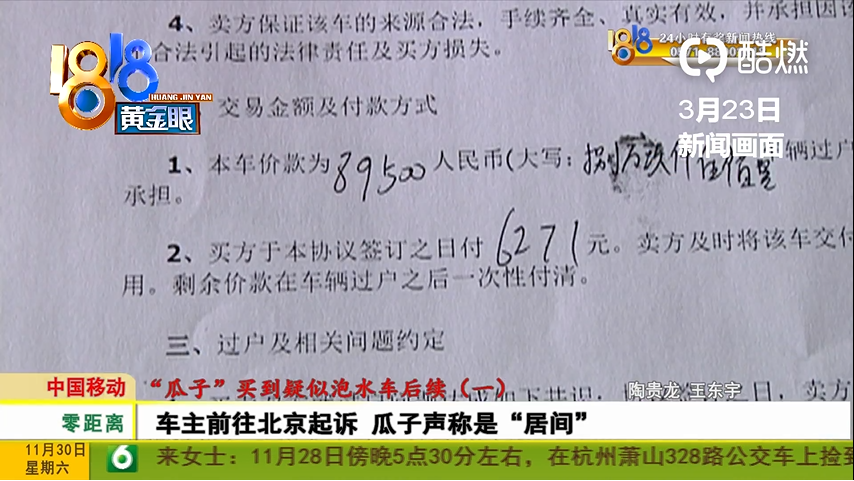 4、卖方保证该车的来源合法，手续齐全、真实有效，并承担因
合法引起的法律责任及买方损失。
1818
HUANG JIN YAN
黄金眼
1818
24小时有奖新闻热线
酷燃
3月23日
新闻画面
交易金额及付款方式
1、本车价款为89500人民币(大写：捌万玖仟伍佰 辆过户
承担。
2、买方于本协议签订之日付6271元。卖方及时将该车交付
用。剩余价款在车辆过户之后一次性付清。
三、过户及相关问题约定
中国移动
“瓜子”买到疑似泡水车后续（一）
陶贵龙 王东宇
零距离
车主前往北京起诉 瓜子声称是“居间”
11月30日
星期六
6
来女士：11月28日傍晚5点30分左右，在杭州萧山328路公交车上捡到